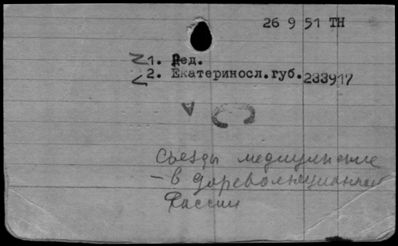 26 9 51 ТН
1. Ред.
2. Екатериносл.губ. 233917
А
Съезды медицинские
– в дореволюционной
России